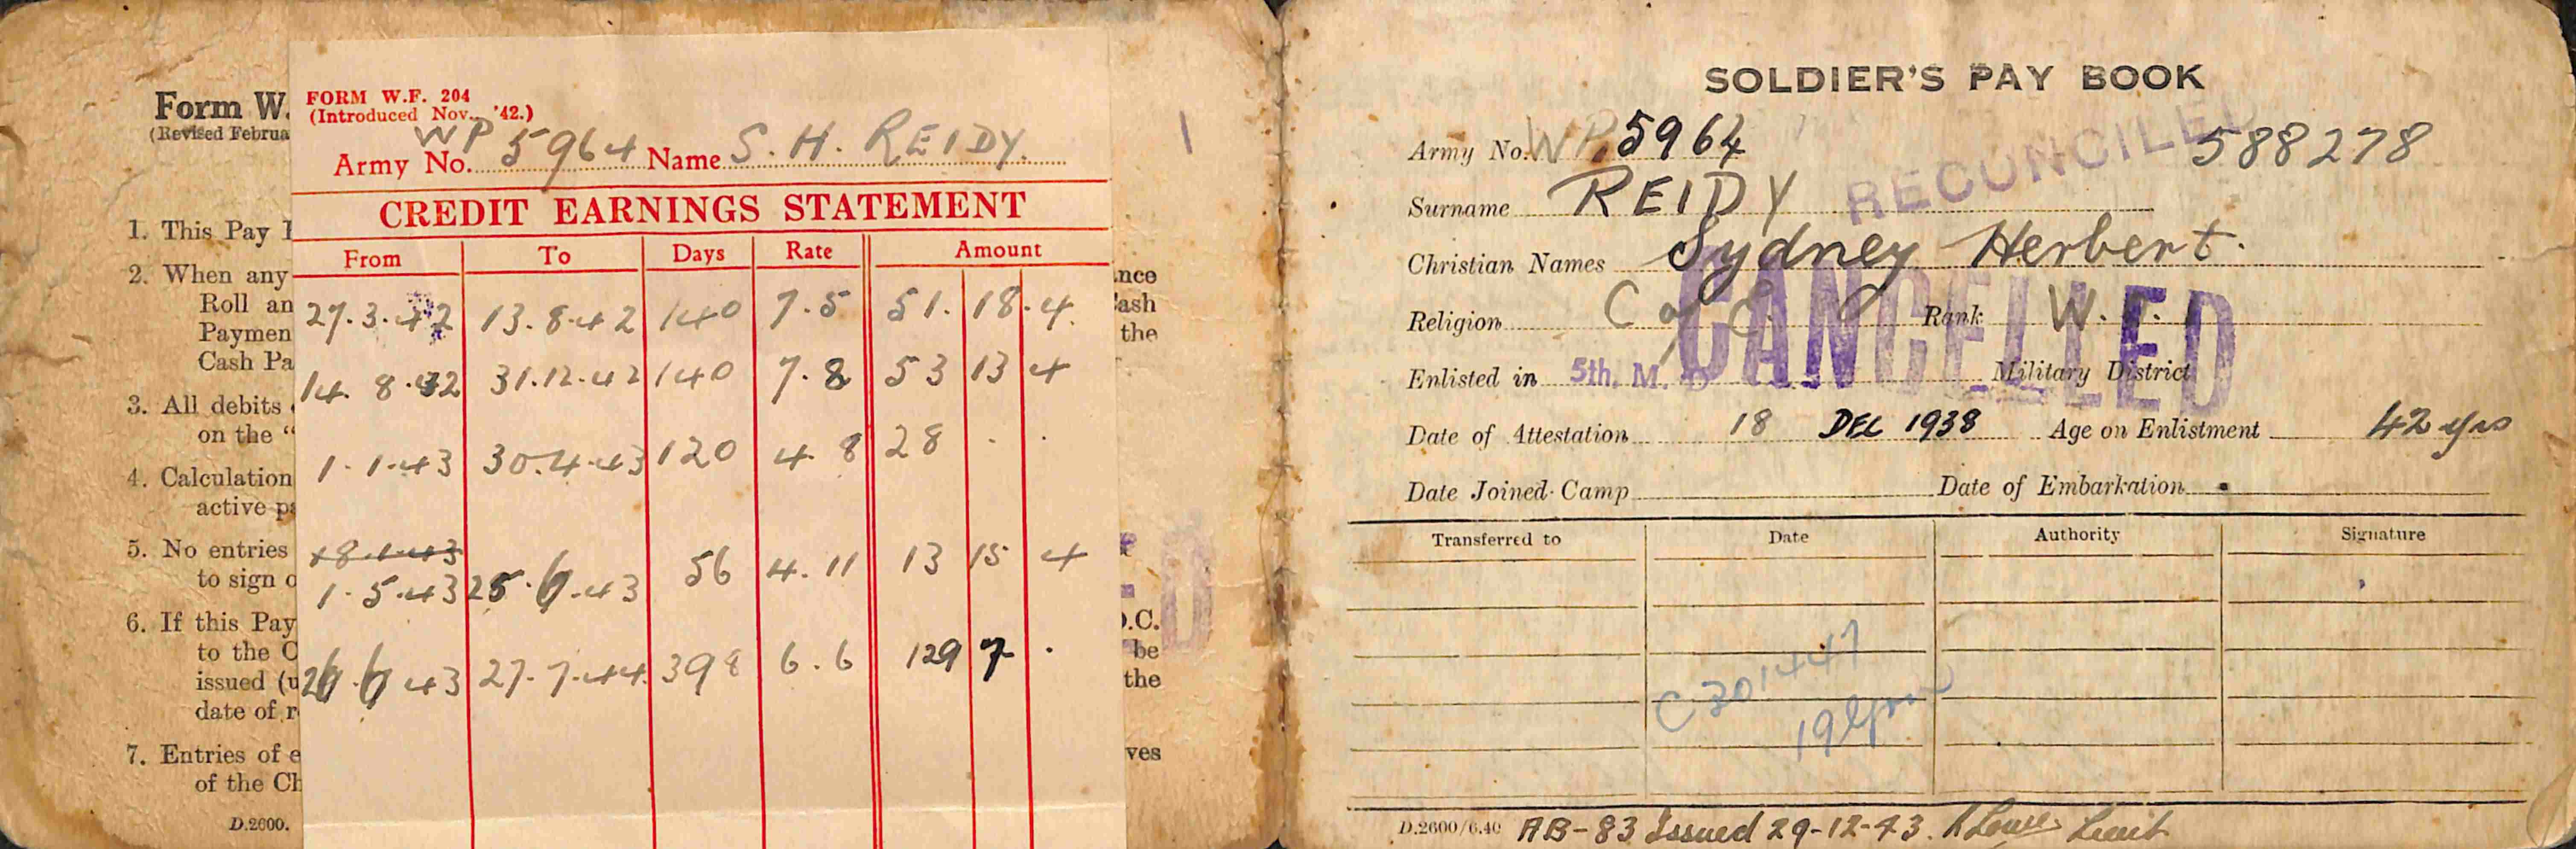 Form W.
(Revised Februa
1. This Pay
2. When any
Roll an
Paymen
Cash Pa
3. All debits
on the "
4. Calculation
active pa
5. No entries
to sign o
6. If this Pay
to the C
issued (u
date of r
7. Entries of e
of the Ch
D.2600.
FORM W.F. 204
(Introduced Nov., '42.)
Army No. WP 5964 Name S. H. REIDY.
CREDIT EARNINGS STATEMENT
From To Days Rate Amount
27.3.42 13.8.42 140 7.5 51. 18.4.
14.8.42 31.12.42 140 7.8 53 13 4
1.1.43 30.4.43 120 4 8 28 . .
18.1.43
1.5.43 25.6.43 56 4.11 13 15 4
26.6 43 27.7.44. 398 6.6 129 7 .
nce
ash
the
O.C.
be
the
ves
SOLDIER'S PAY BOOK
RECONCILED
Army No. WP 5964 588278
Surname REIDY
Christian Names Sydney Herbert.
Religion C of E. Rank W.
CANCELLED
Enlisted in 5th. M. D Military District
Date of Attestation 18 DEC 1938 Age on Enlistment 42 yrs
Date Joined Camp Date of Embarkation
Transferred to Date Authority Signature
C301447
D.2600/6.40 AB-83 Issued 29-12-43. Lieut